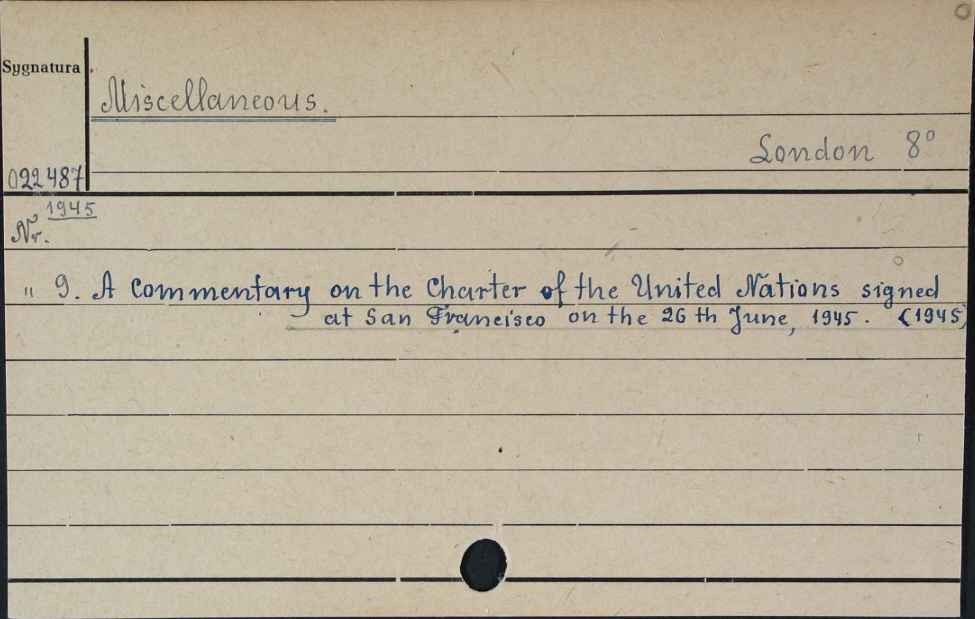 Sygnatura
Miscellaneous.
London 8°
022487
1945
Nr.
" 9. A Commentary on the Charter of the United Nations signed
at San Francisco on the 26 th June, 1945. (1945)